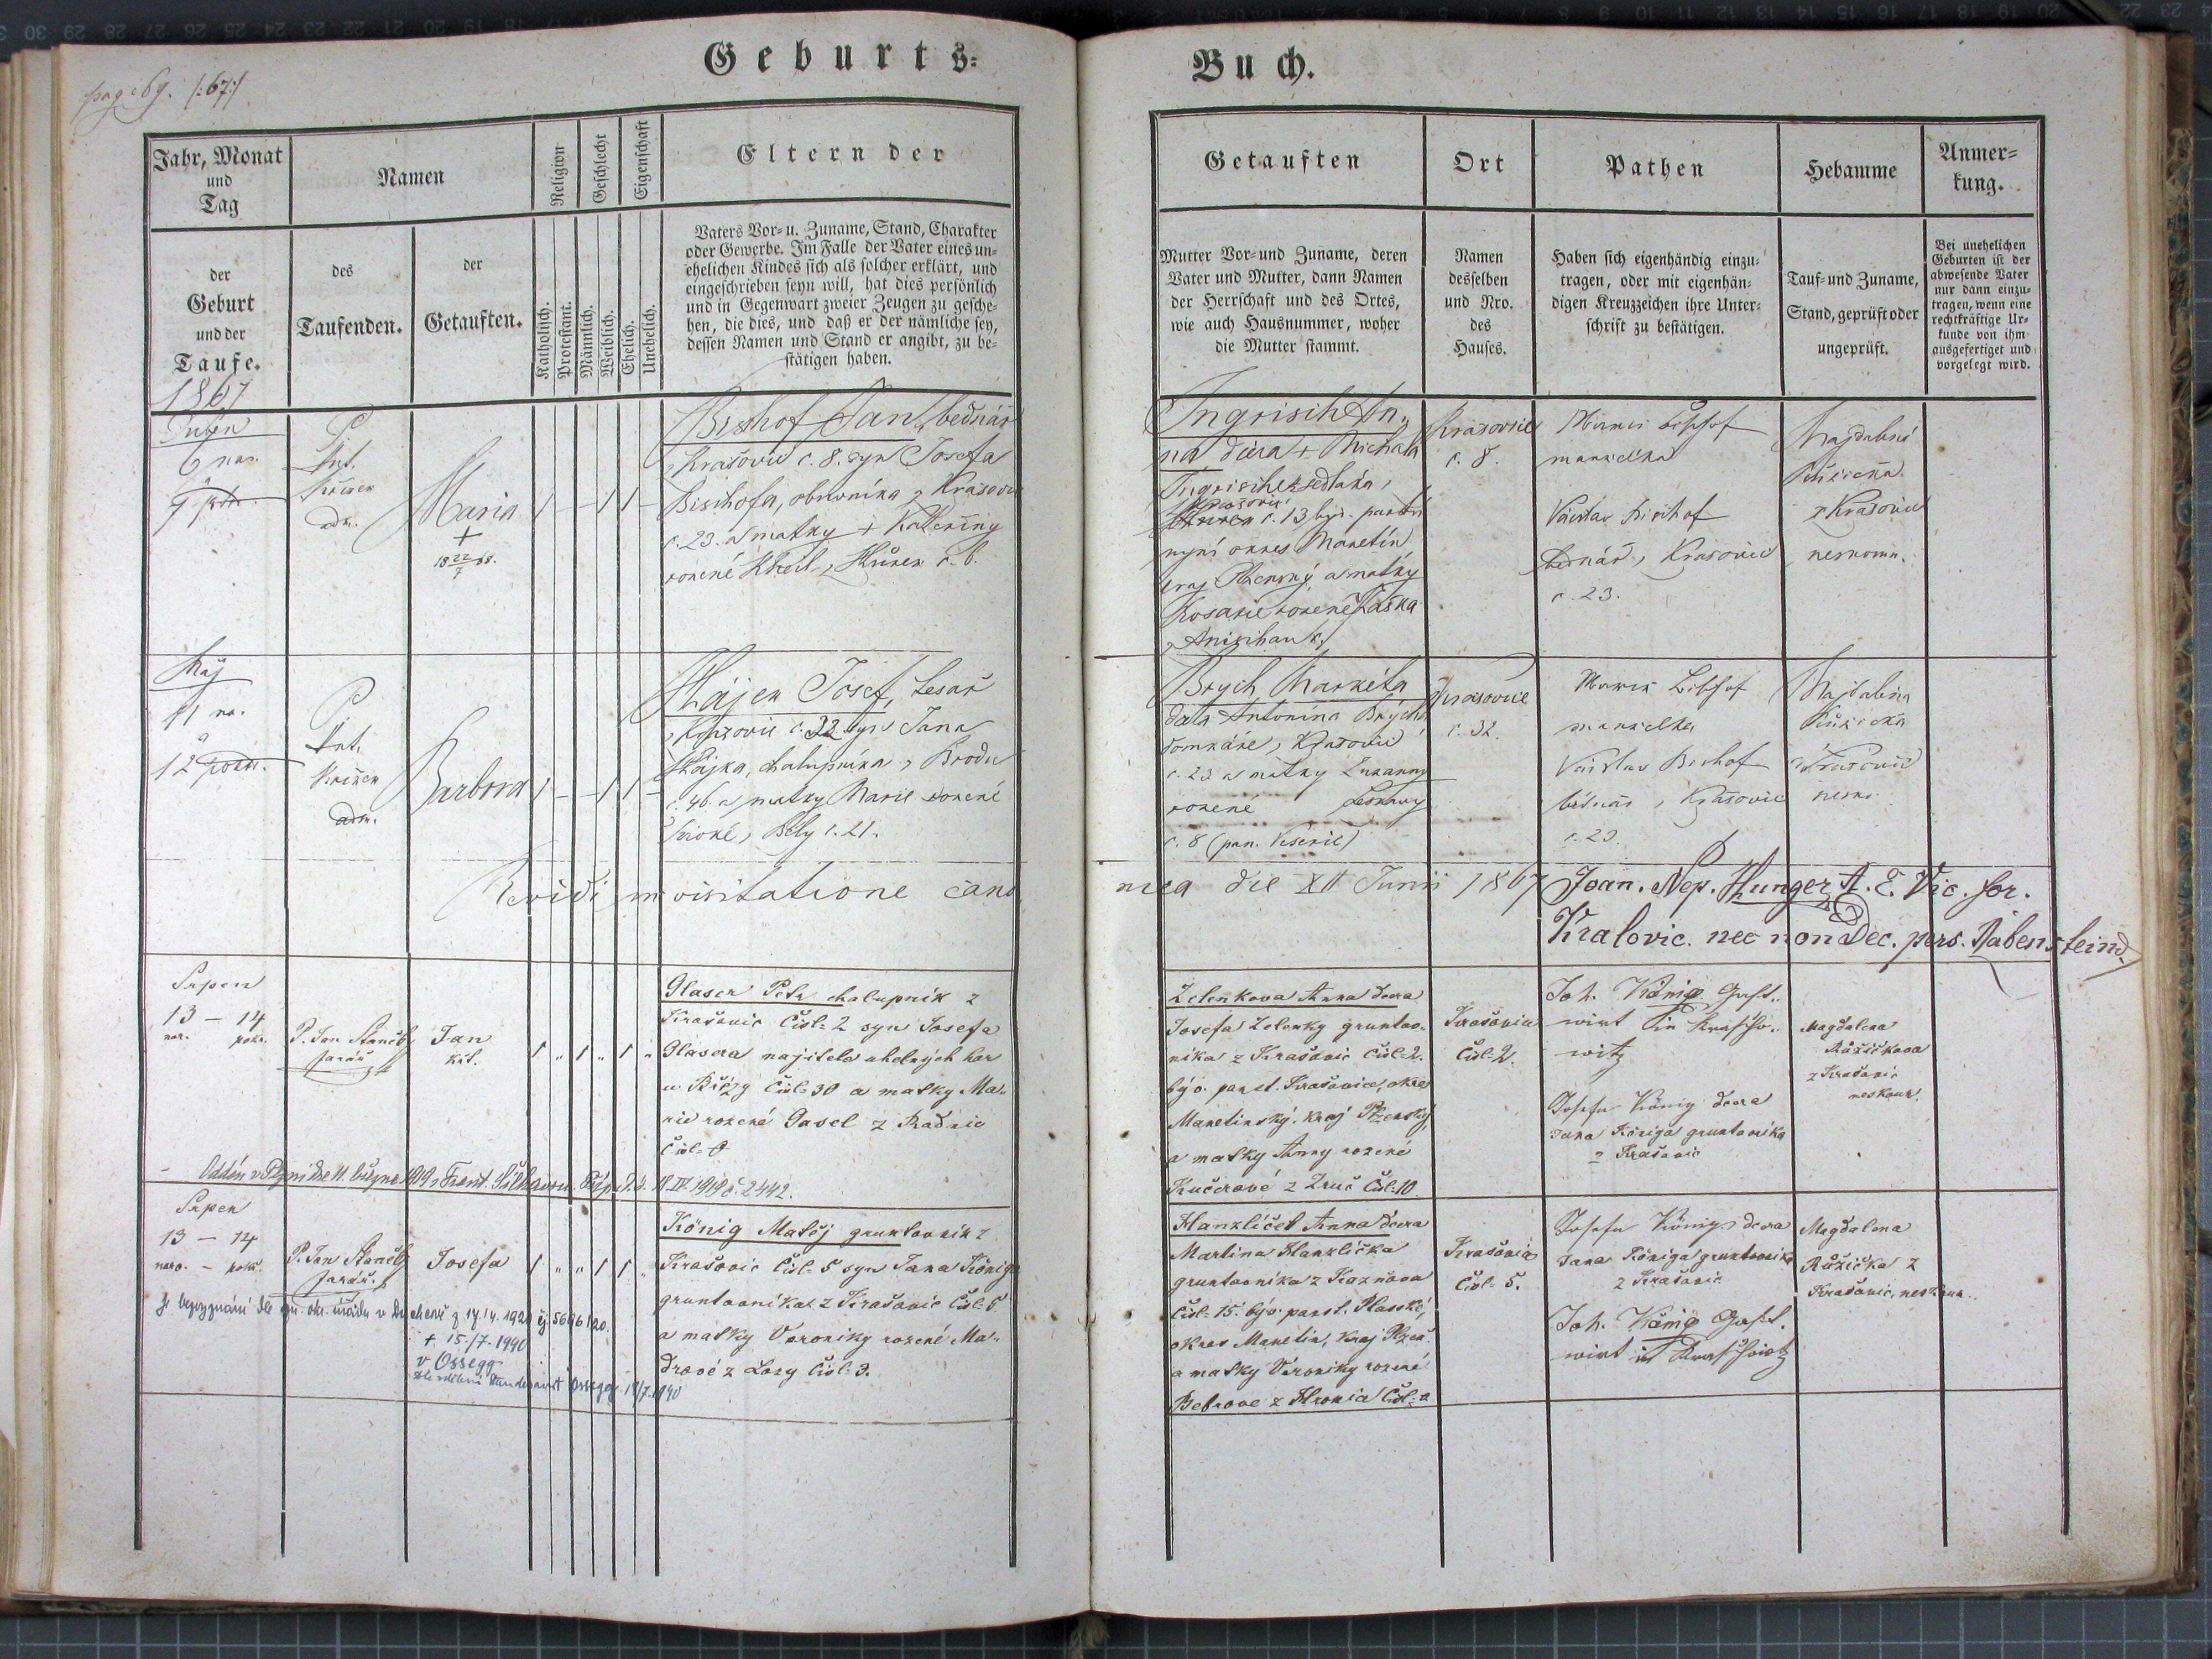 Geburts-
Buch.
page 69. /:67:/
Jahr, Monat
und
Tag
der
Geburt
und der
Taufe.
1867
Namen
des
Taufenden.
der
Getauften.
Religion
Katholisch.
Protestant.
Geschlecht
Männlich.
Weiblich.
Eigenschaft
Ehelich.
Unehelich.
Eltern der
Vaters Vor- u. Zuname, Stand, Charakter
oder Gewerbe. Im Falle der Vater eines un-
ehelichen Kindes sich als solcher erklärt, und
eingeschrieben seyn will, hat dies persönlich
und in Gegenwart zweier Zeugen zu gesche-
hen, die dies, und daß er der nämliche sey,
dessen Namen und Stand er angibt, zu be-
stätigen haben.
Getauften
Mutter Vor- und Zuname, deren
Vater und Mutter, dann Namen
der Herrschaft und des Ortes,
wie auch Hausnummer, woher
die Mutter stammt.
Ort
Namen
desselben
und Nro.
des
Hauses.
Pathen
Haben sich eigenhändig einzu-
tragen, oder mit eigenhän-
digen Kreuzzeichen ihre Unter-
schrift zu bestätigen.
Hebamme
Tauf- und Zuname,
Stand, geprüft oder
ungeprüft.
Anmer-
kung.
Bei unehelichen
Geburten ist der
abwesende Vater
nur dann einzu-
tragen, wenn eine
rechtkräftige Ur-
kunde von ihm
ausgefertiget und
vorgelegt wird.
Duben
6 nar.
9
P.
Ant.
adm.
Maria
+
18 22/7 68.
Bischof Jan, bednář
z Krašovic č. 8. syn Josefa
Bischofa, obuvníka z Krašovic
č. 23. a matky + Kateřiny
rozené
č. 6.
Ingrisch An-
na dcera + Michala
Ingrische sedláka,
č. 13 býv. panství
nyní okres Manetín
kraj Plzenský a matky
Rosarie rozené
Krašovic
č. 8.
Bischof
manželka
Václav Bischof
bednář z Krašovic
č. 23.
Magdalena
Růžičkova
z Krašovic
neskoum.
Máj
11 na.
12 pokř.
P.
Ant.
adm.
Barbora
Hájek Josef, tesař
z Krašovic č. 32 syn Jana
Hájka, chalupníka z Brodu
č. 46. a matky Marie rozené
z Běly č. 21.
Brych Markéta
dcera Antonína Brycha
domkáře z Krašovic
č. 23 a matky Zuzanny
rozené
č. 8 (pan.
Krašovic
č. 32.
Bischof
manželka
Václav Bischof
bednář z Krašovic
č. 23.
Magdalena
Růžička
z Krašovic
nesk.
Revidi in visitatione cano
nica die XII Junii 1867 Joan. Nep. Hunger, A. E. Vic. for.
Kralovic. nec non Dec. pers. Rabenstein.
Srpen
13 – 14
nar. pokř.
P. Jan
farář
Jan
kat.
Glaser Petr chalupník z
Krašovic Čísl. 2 syn Josefa
Glasera najitele uhelných hor
u Břízy Čísl. 30 a matky Ma-
rie rozené Gasel z Radnic
Čísl.
Zelenkova Anna dcera
Josefa Zelenky gruntov-
níka z Krašovic Čísl. 2.
býv. panst. Krašovice, okres
Manetinský, kraj Plzenský
a matky Anny rozené
Kučerové z Zruč Čísl. 10
Krašovic
Čísl. 2.
Joh. König Gast-
wirt in Krascho-
witz
Josefa König dcera
Jana Königa gruntovníka
z Krašovic
Magdalena
Růžičkova
z Krašovic
neskouš.
Oddán v Plzni dne 11. března 1919 s Frant. Šilhavou. 11. IV. 1919 č. 2442.
Srpen
13 – 14
naro. – pokř.
P. Jan
farář.
Josefa
+ 15./7. 1940
v Ossegg
Standesamt Ossegg 18/7. 1940
König Matěj gruntovník z
Krašovic Čísl. 5 syn Jana Königa
gruntovníka z Krašovic Čísl. 5
a matky Veroniky rozené Ma-
drové z Lozy Čísl. 3.
Hanzlíček Anna dcera
Martina Hanzlíčka
gruntovníka z Kaznova
Čísl. 15. býv. panst. Plasské,
okres Manetin, kraj Plzeň.
a matky Veroniky rozené
Bebrové z Hromic Čísl.
Krašovic
Čísl. 5.
Josefa König dcera
Jana Königa gruntovníka
z Krašovic
Joh. König Gast-
wirt in Kraschowitz
Magdalena
Růžička z
Krašovic, neskouš.